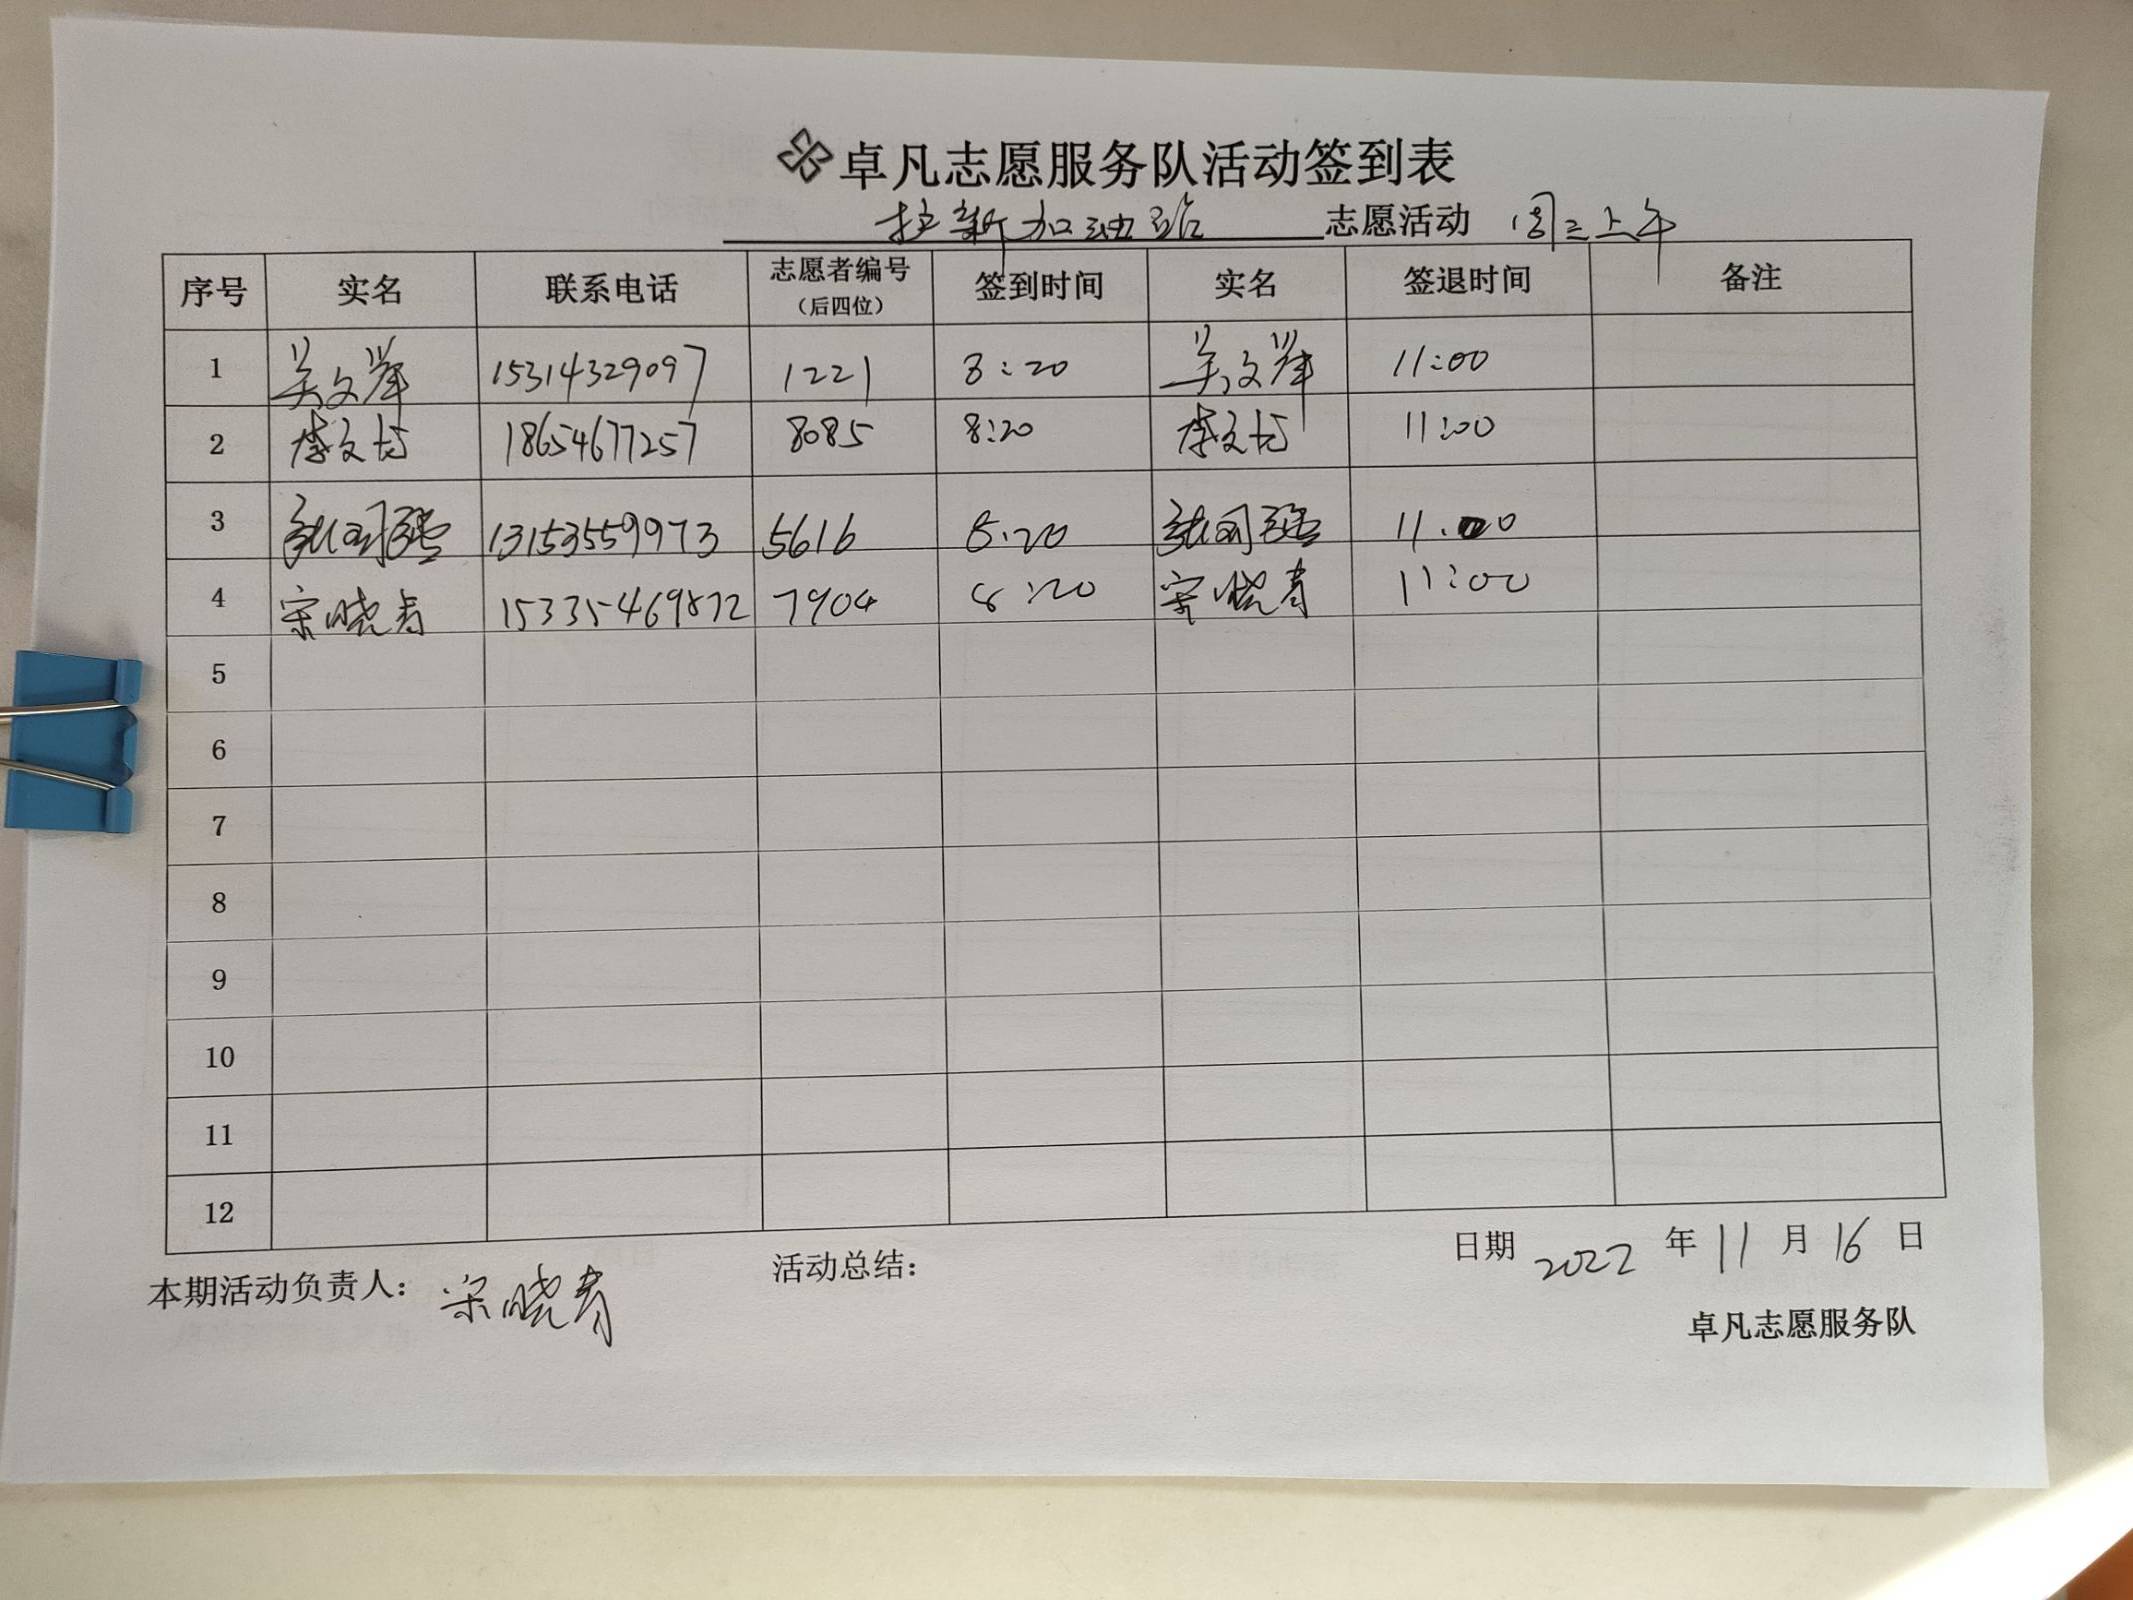 卓凡志愿服务队活动签到表
加油站 志愿活动 周三上午
序号 实名 联系电话 志愿者编号（后四位） 签到时间 实名 签退时间 备注
1 吴文举 15314329097 1221 8:20 吴文举 11:00
2 李文 18654677257 8085 8:20 李文 11:00
3 13153559973 5616 8.20 11.00
4 宋晓春 15335469872 7904 8:20 宋晓春 11:00
5
6
7
8
9
10
11
12
本期活动负责人：宋晓春 活动总结： 日期 2022 年 11 月 16 日
卓凡志愿服务队